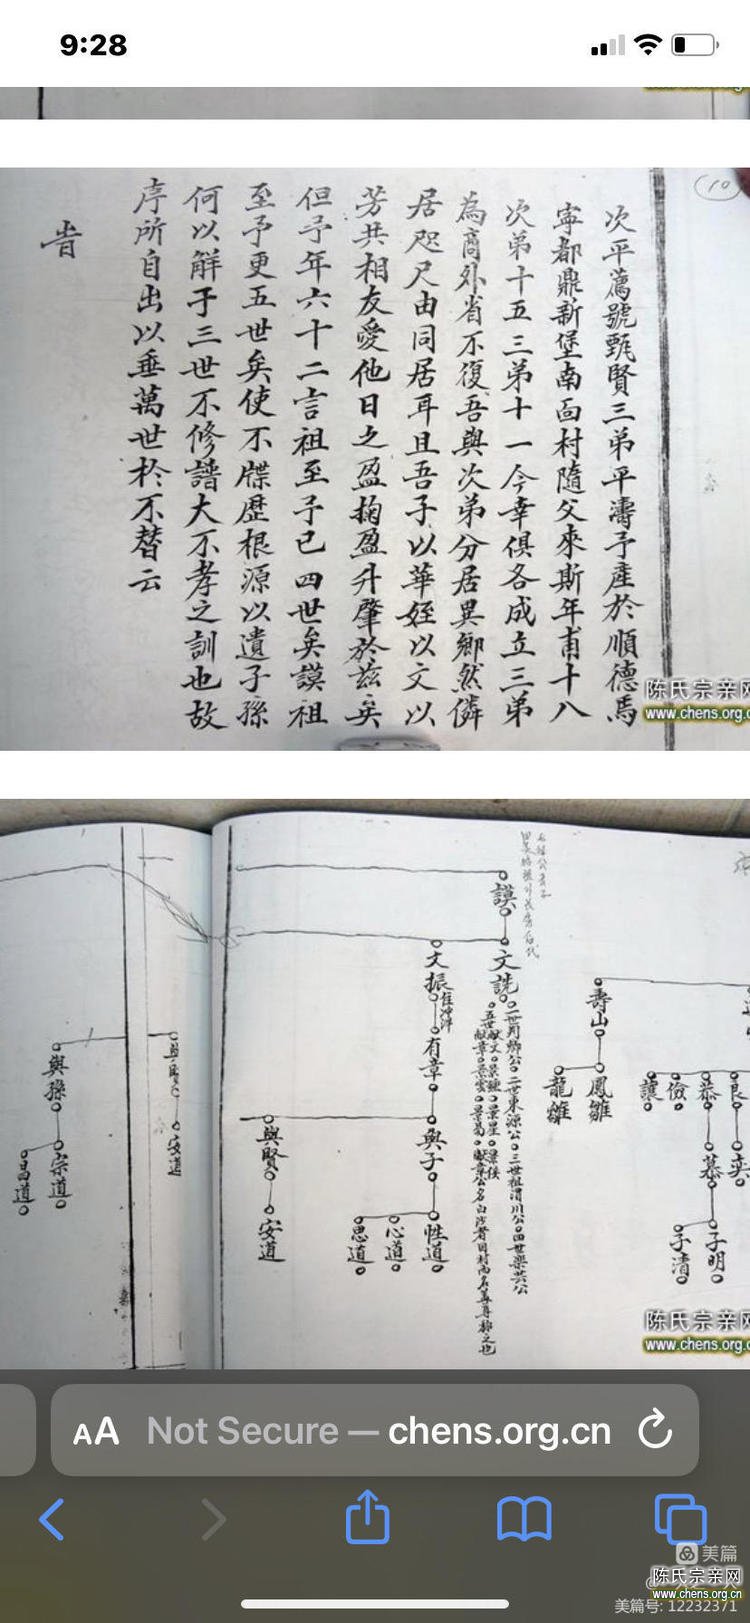 9:28
10
次平薦號甄賢三弟平濤予產於順德馬
寧都鼎新堡南面村隨父來斯年甫十八
次弟十五三弟十一今幸俱各成立三弟
為商外省不復吾與次弟分居異鄉然僯
居咫尺由同居耳且吾子以華姪以文以
芳共相友愛他日之盈掬盈升肇於茲矣
但予年六十二言祖至予已四世矣謨祖
至予更五世矣使不牒歷根源以遺子孫
何以解于三世不修譜大不孝之訓也故
序所自出以垂萬世於不替云
旹
陈氏宗亲网
www.chens.org.c
壽山
鳳雛
龍雛
良
恭
儉
讓
奕
慕
子明
子清
謨
文詵
文振
有章
與子
性道
心道
思道
與賢
安道
安道
與孫
宗道
昌道
陈氏宗亲网
www.chens.org.c
AA Not Secure — chens.org.cn
美篇
陈氏宗亲网
www.chens.org.cn
美篇号: 12232371